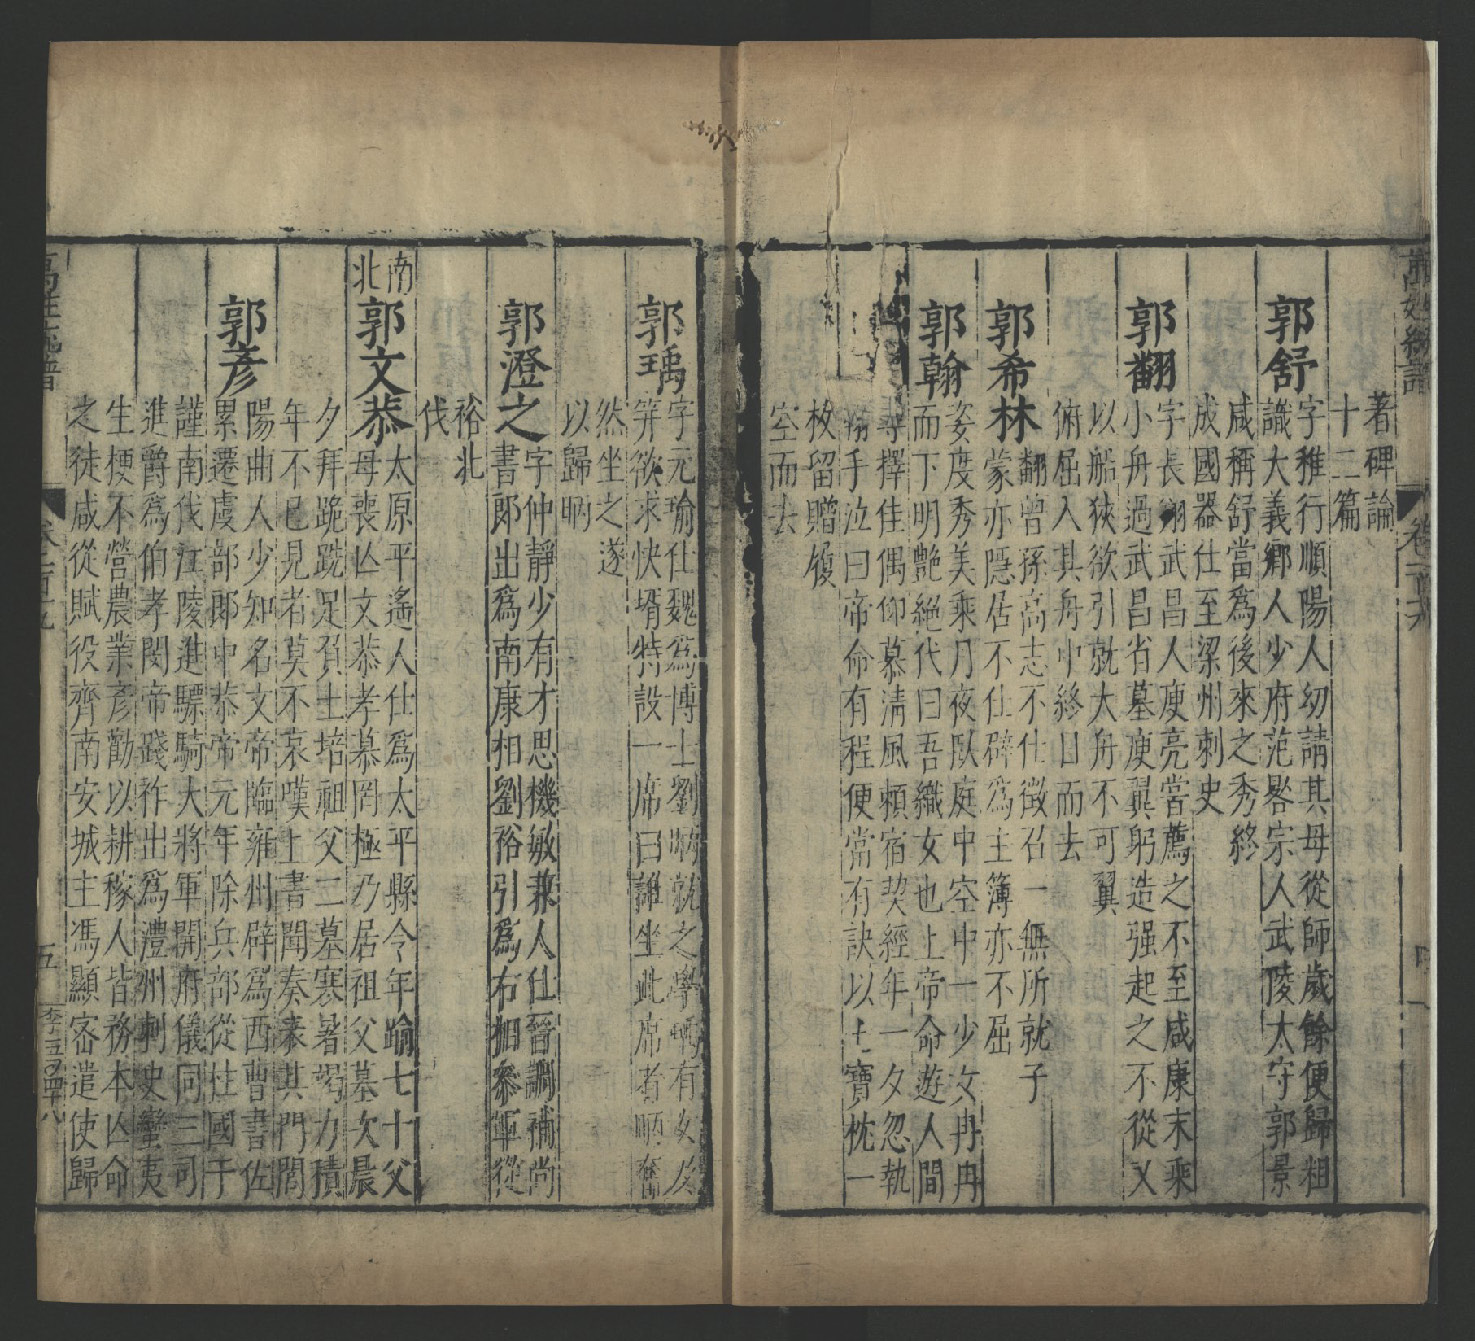 萬姓統譜
著碑論
十二篇
郭舒
字稚行順陽人幼請其母從師歲餘便歸粗
識大義鄉人少府范晷宗人武陵太守郭景
咸稱舒當爲後來之秀終
成國器仕至梁州刺史
郭翻
字長翔武昌人庾亮嘗薦之不至咸康末乘
小舟過武昌省墓庾翼躬造强起之不從又
以船狹欲引就大舟不可翼
俯屈入其舟中終日而去
郭希林
翻曾孫高志不仕徵召一無所就子
蒙亦隱居不仕辟爲主簿亦不屈
郭翰
姿度秀美乘月夜臥庭中空中一少女冉冉
而下明艷絕代曰吾織女也上帝命遊人間
尋擇佳偶仰慕清風頼宿契經年一夕忽執
翰手泣曰帝命有程便當有訣以七寶枕一
枚留贈履
空而去
郭瑀
字元瑜仕魏爲博士劉昞就之學瑀有女及
笄欲求快壻特設一席曰誰坐此席者昞奮
然坐之遂
以歸昞
郭澄之
字仲靜少有才思機敏兼人仕晉調補尚
書郎出爲南康相劉裕引爲右相參軍從
裕北
伐
南北
郭文恭
太原平遙人仕爲太平縣令年踰七十父
母喪亾文恭孝慕罔極乃居祖父墓次晨
夕拜跪跣足負土培祖父二墓寒暑竭力積
年不已見者莫不哀嘆上書聞奏表其門閭
郭彥
陽曲人少知名文帝臨雍州辟爲西曹書佐
累遷虞部郎中恭帝元年除兵部從柱國于
謹南伐江陵進驃騎大將軍開府儀同三司
進爵爲伯孝閔帝踐祚出爲澧州刺史蠻夷
生梗不營農業彥勸以耕稼人皆務本亾命
之徒咸從賦役齊南安城主馮顯密遣使歸
萬姓統譜
五